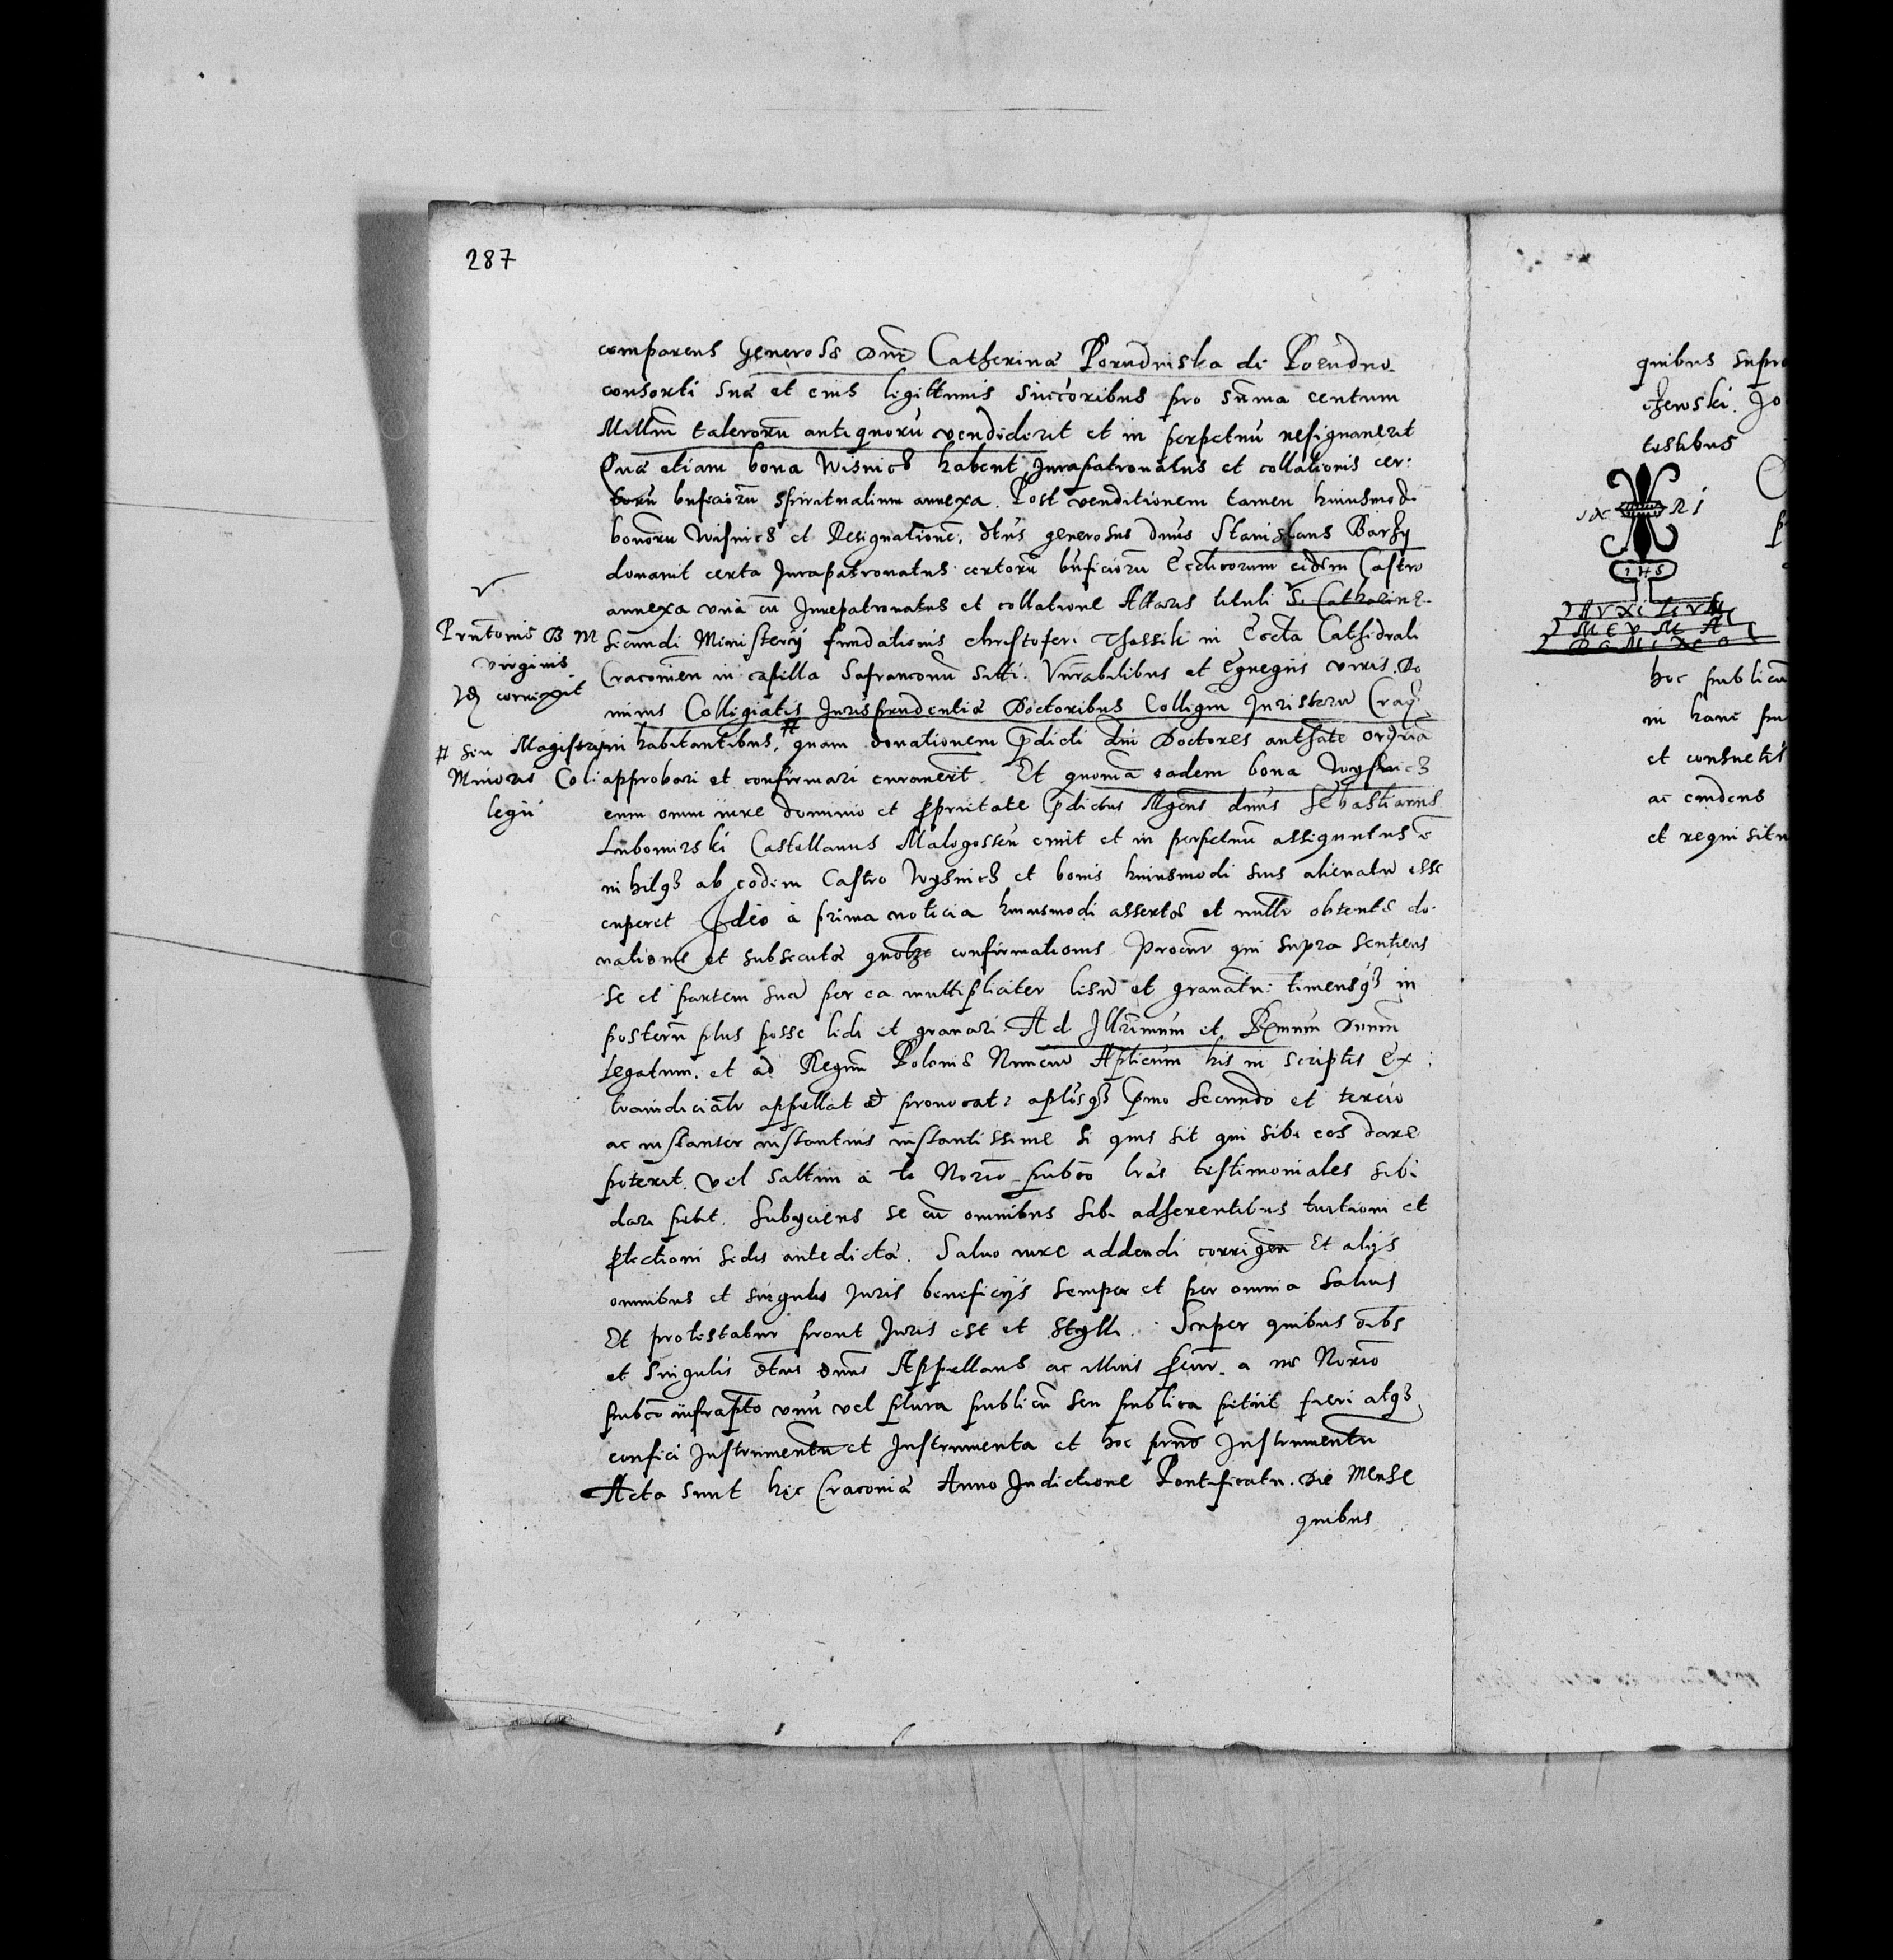 287
comparens Generosæ Dnæ Catherinæ Porudniska de Porudno
consorti suæ et eius legittimis succoribus pro suma centum
Millm talerorũ antiquorũ vendiderit et in perpetuũ resignauerit
Quæ etiam bona Wisnicz habent Jurapatronatus et collationis cer:
torũ bnficiorũ spiritualium annexa. Post venditionem tamen huiusmodi
bonorũ Wisnicz et Resignationẽ, dtus generosus dnus Stanislaus Barzy
donauit certa Jurapatronatus certorũ bnficiorũ Eccliticorum eidem Castro
annexa unà cũ Jurepatronatus et collatione Altaris tituli S. Catharinæ
Prntonis B M
virginis
Id correxit
Secundi Ministerij fundationis christoferi Thessik in Eccla Cathedrali
Cracouien in capella Safranconũ siti. Vnrabilibus et Egregiis viris Do
minis Collegiatis Jurisprudentiæ Doctoribus Collegiũ Juristarũ Crac
# seu Magistrorũ
Minoris Col
legii
inhabitantibus, # quam donationem pdicti dni Doctores authate ordria
approbari et confirmari curauerit. Et quoniã eadem bona Wysnicz
cum omni iure dominio et pprietate pdictus Mgcus dnus Sebastianus
Lubomirski Castellanus Malogosseñ emit et in perpetuũ assiquutus ẽ
nihilqz ab eodem Castro Wysnicz et bonis huiusmodi suis alienatũ esse
cuperet Ideo à prima noticia huiusmodi assertæ et nullr obtentæ do
nationis et subsecutæ quobzt confirmationis Procur qui supra sentiens
se et partem suã per ea multipliciter lesũ et grauatũ: timensqz in
posterũ plus posse ledi et grauari Ad Illrimum et Rmum Dnum
Legatum et ad Regnm Poloniæ Nunciũ Aplicum his in scriptis Ex:
traiudicialr appellat et prouocat: aplosqz pmo Secundo et tercio
ac instanter instantius instantissime si quis sit qui sibi eos dare
poterit vel saltim à te Norio pubco lras testimoniales sibi
dari petit. Subyciens se cũ omnibus sibi adherentibus tuitioni et
ptectioni sedis antedictæ. Saluo iure addendi corrigen Et alijs
omnibus et singulis Juris beneficijs semper et per omnia saluis
Et protestatur prout Juris est et Styli. Super quibus oibs
et singulis dtus dnus Appellans ac illius pcur. a me Norio
pubco infrapto unũ vel plura publicũ seu publica petiit fieri atqz
confici Instrumentũ et Instrumenta et hoc prns Instrumentũ
Acta sunt hic Cracouiæ Anno Indictione Pontificatu. Die Mense
quibus
quibus supra
czewski. Jo
testibus
IHS
AVXILIVM
MEVM A
DOMINO
hoc publicũ
in hanc pu
et consuetis
ac eiusdens
et requisitu